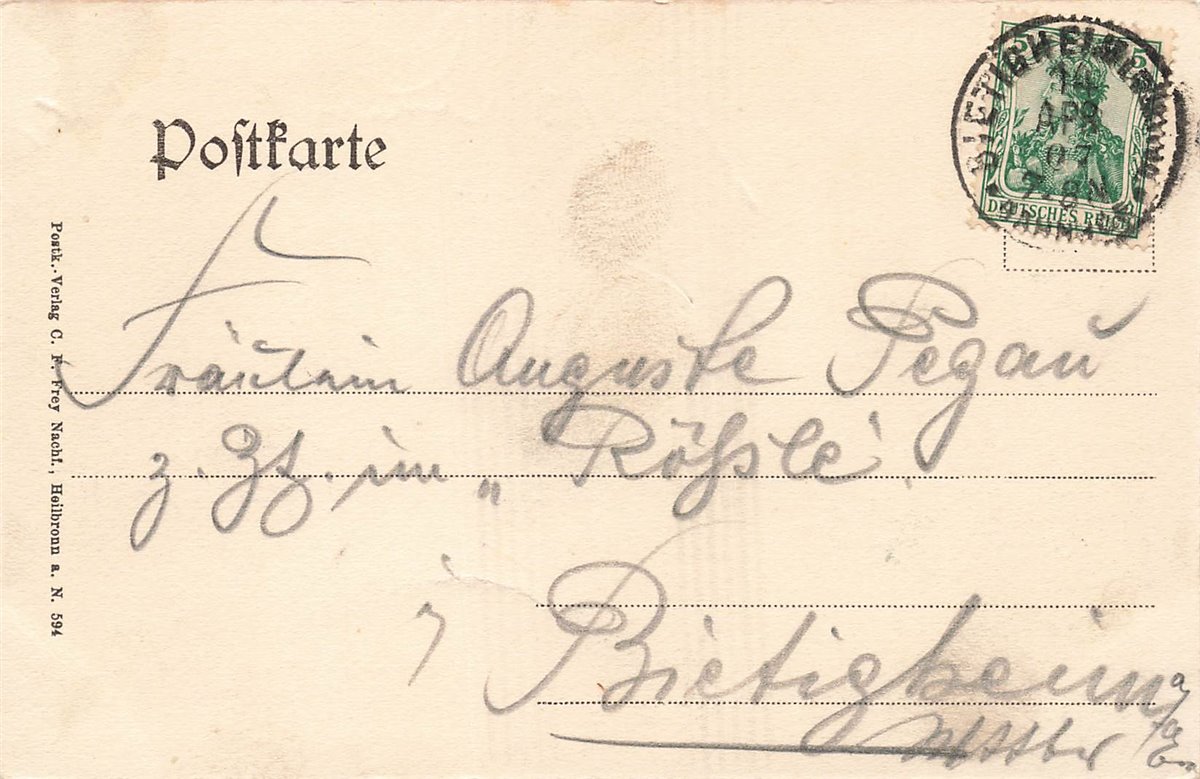 Postkarte
5 5
DEUTSCHES REICH
BIETIGHEIM
10
APR
07
Fräulein Auguste Pegau
z. Zt. im „Rößle'.
Bietigheim
Postk.-Verlag C. F. Frey Nachf., Heilbronn a. N. 594